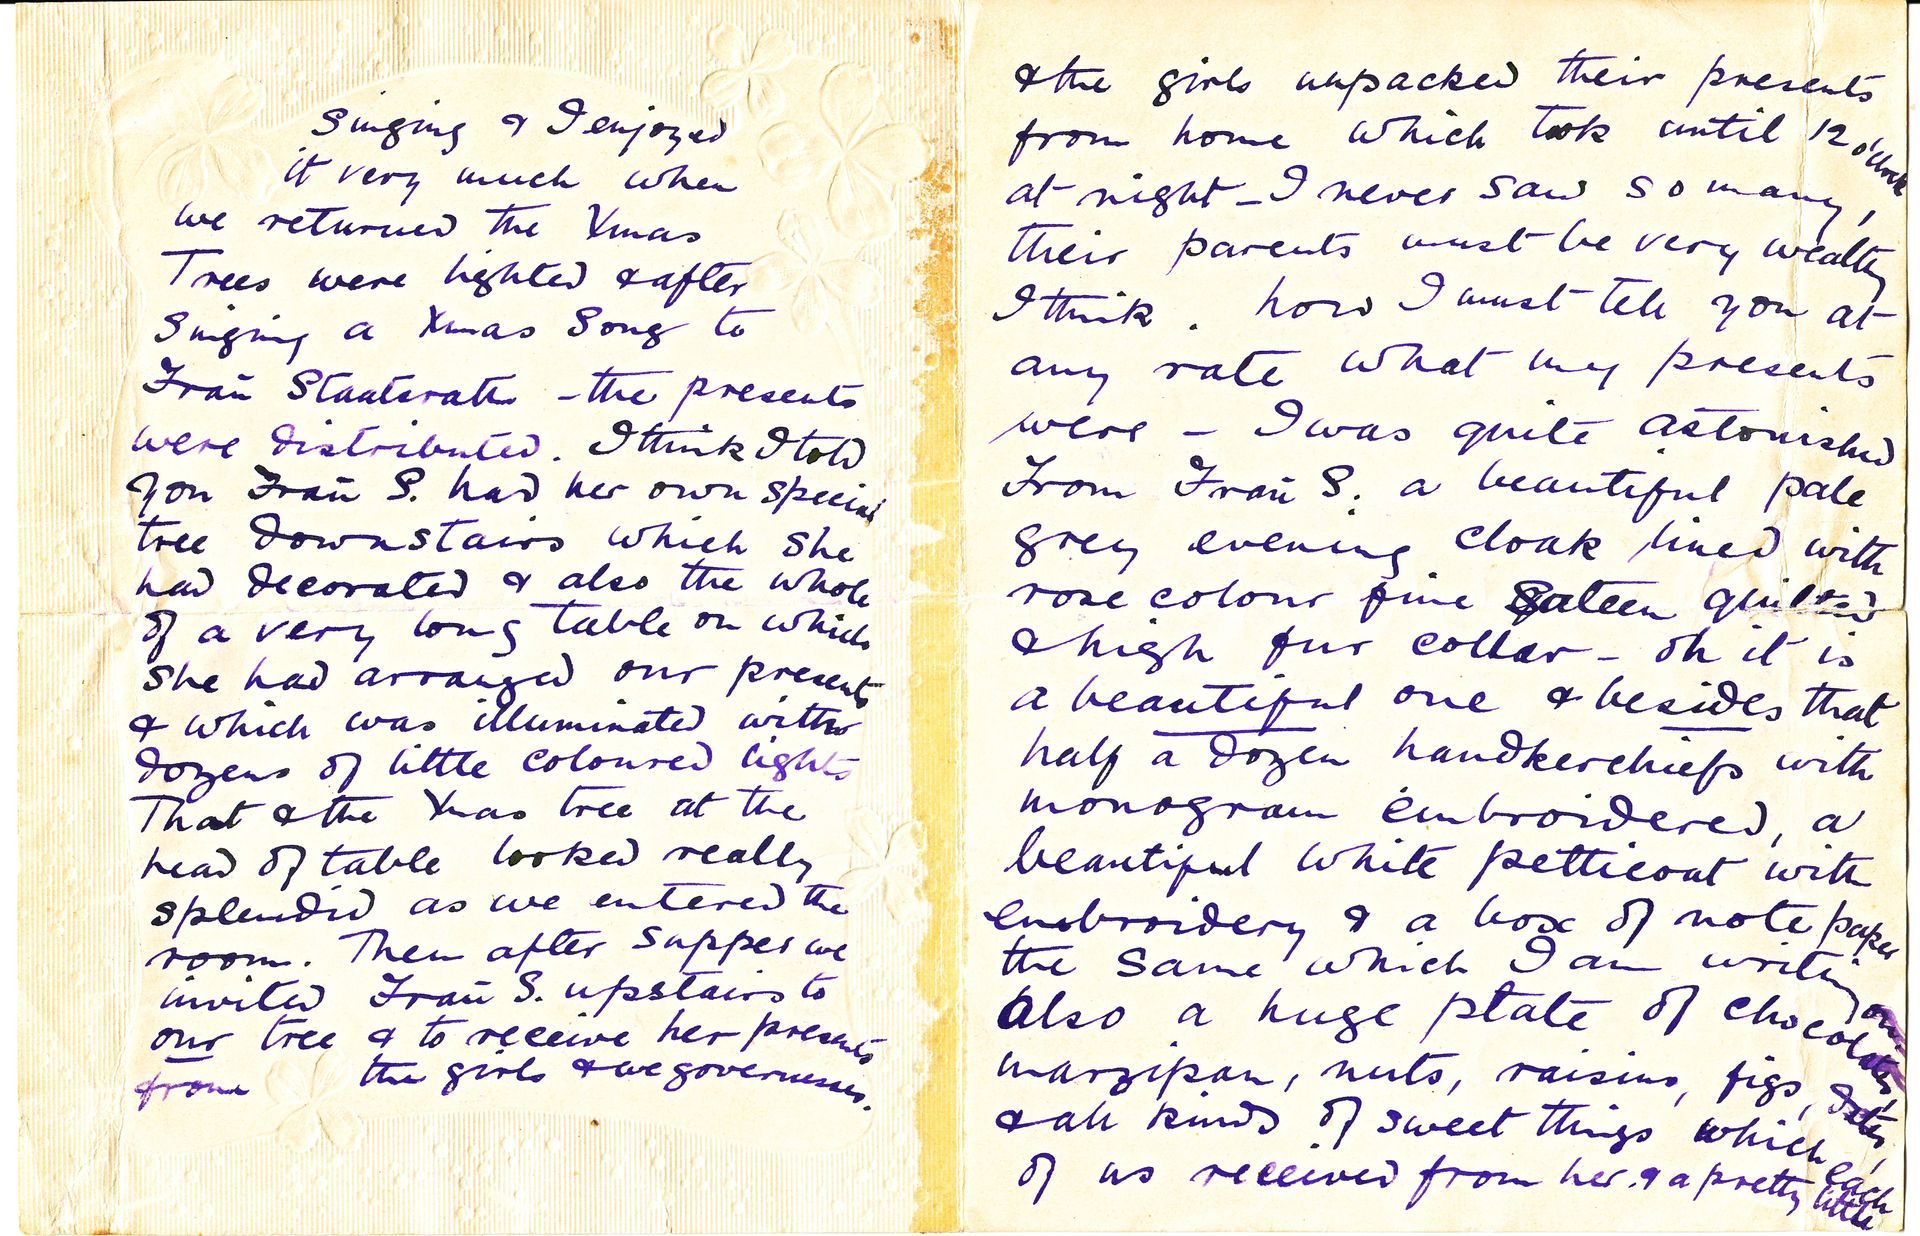 singing & I enjoyed
it very much when
we returned the Xmas
Trees were lighted & after
singing a Xmas Song to
Fraü Staatsrath - the presents
were distributed. I think I told
you Fraü S. had her own special
tree downstairs which she
had decorated & also the whole
of a very long table on which
she had arranged our presents
& which was illuminated with
dozens of little coloured lights
That & the Xmas tree at the
head of table looked really
splendid as we entered the
room. Then after supper we
invited Fraü S. upstairs to
our tree & to receive her presents
from the girls & we governesses.
& the girls unpacked their presents
from home which took until 12 o'clock
at night - I never saw so many,
their parents must be very wealthy
I think. now I must tell you at
any rate what my presents
were - I was quite astonished
From Fraü S. a beautiful pale
grey evening cloak lined with
rose colour fine Sateen quilted
& high fur collar - oh it is
a beautiful one & besides that
half a dozen handkerchiefs with
monogram embroidered, a
beautiful white petticoat with
embroidery & a box of note paper
the same which I am writing on
also a huge plate of chocolates,
marzipan, nuts, raisins, figs, dates,
& all kinds of sweet things which each
of us received from her. & a pretty little